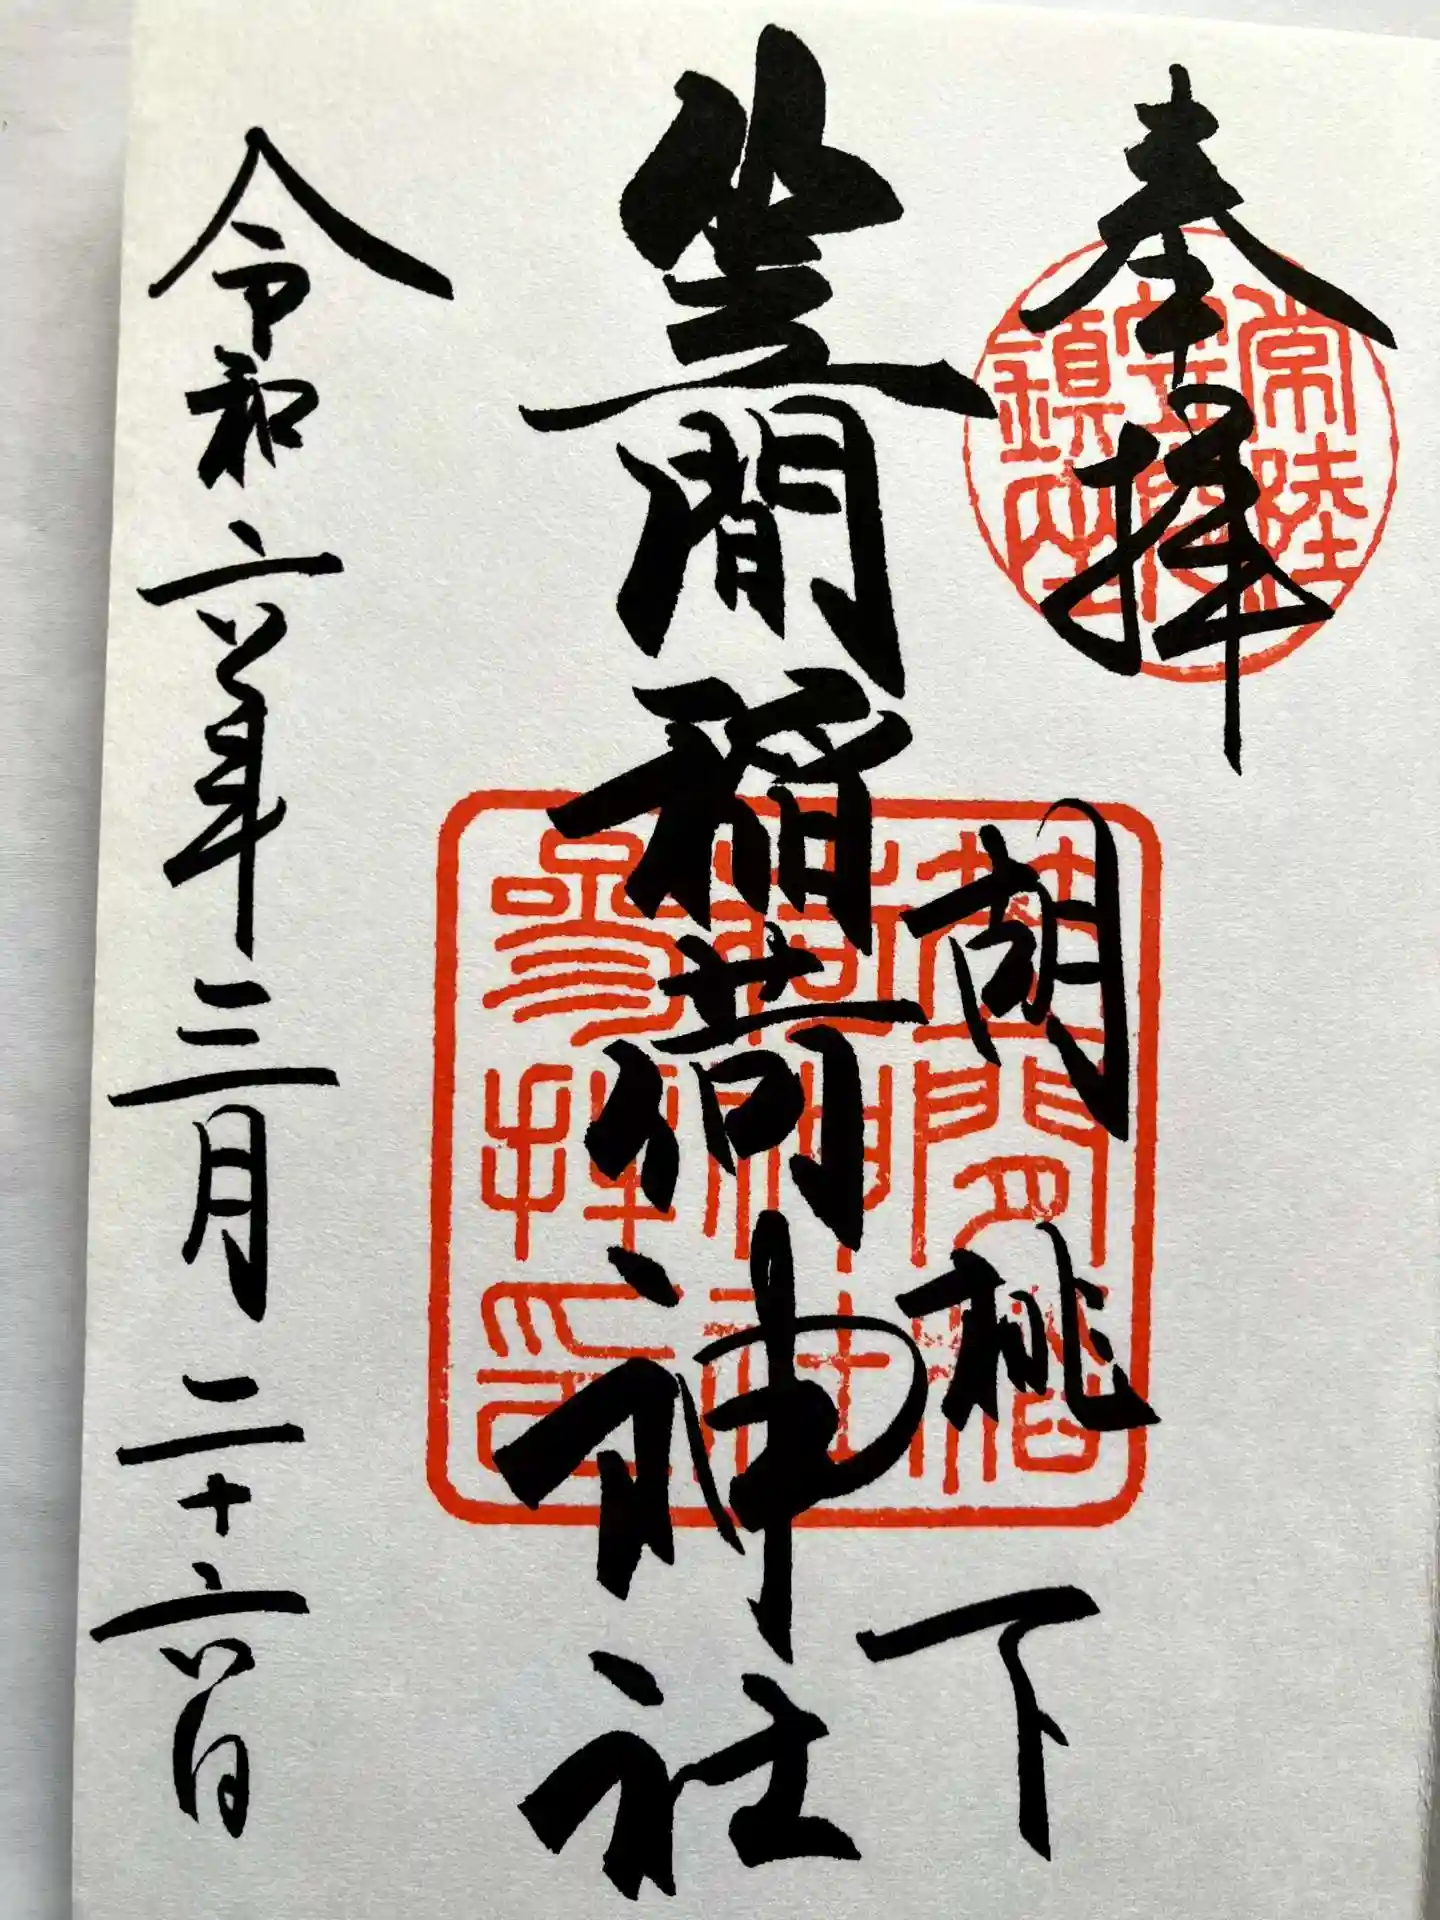 奉拝
常陸
笠間
鎮座
胡桃下
笠間稲荷神社
笠間稲
荷神社
参拝印
令和六年三月二十六日